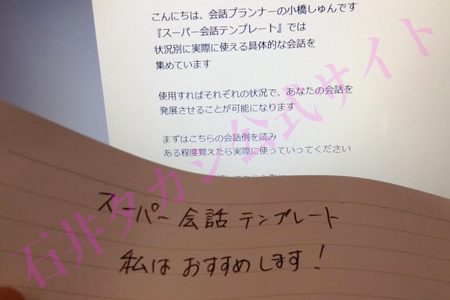 こんにちは、会話プランナーの小橋しゅんです
『スーパー会話テンプレート』では
状況別に実際に使える具体的な会話を
集めています
使用すればそれぞれの状況で、あなたの会話を
発展させることが可能になります
まずはこちらの会話例を読み
ある程度覚えたら実際に使っていってください
スーパー会話テンプレート
私はおすすめします!
石井タカシ公式サイト